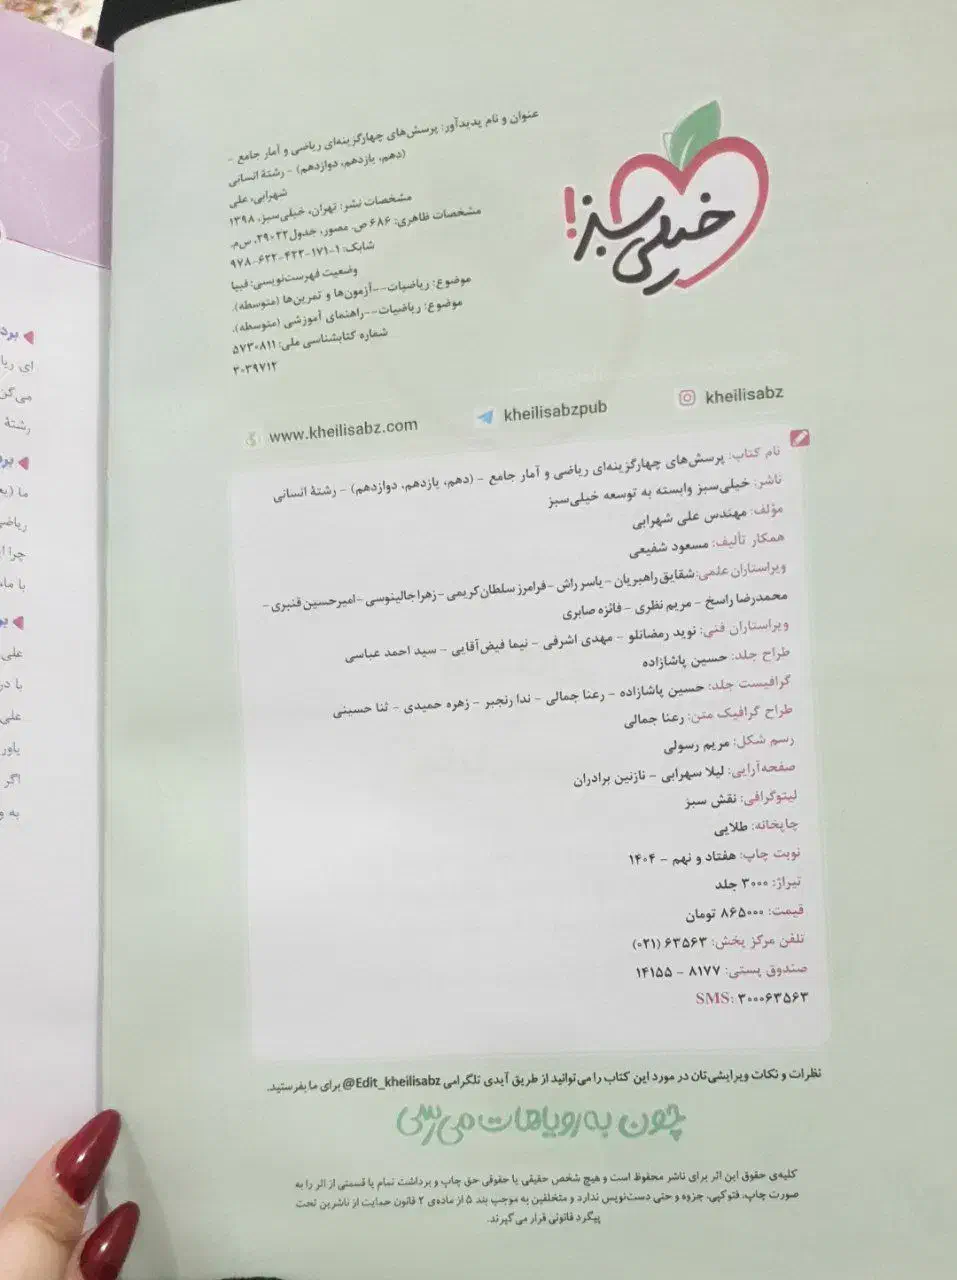 عنوان و نام پدیدآور: پرسش‌های چهارگزینه‌ای ریاضی و آمار جامع -
(دهم، یازدهم، دوازدهم) - رشتهٔ انسانی
شهرابی، علی
مشخصات نشر: تهران، خیلی‌سبز، ۱۳۹۸
مشخصات ظاهری: ۶۸۶ ص. مصور، جدول ۲۲×۲۹ س.م.
شابک: ۱-۱۷۱-۴۲۲-۶۲۲-۹۷۸
وضعیت فهرست‌نویسی: فیپا
موضوع: ریاضیات--آزمون‌ها و تمرین‌ها (متوسطه).
موضوع: ریاضیات--راهنمای آموزشی (متوسطه).
شماره کتابشناسی ملی: ۵۷۳۰۸۱۱
۳۰۳۹۷۱۲
خیلی سبز!
www.kheilisabz.com kheilisabzpub kheilisabz
نام کتاب: پرسش‌های چهارگزینه‌ای ریاضی و آمار جامع - (دهم، یازدهم، دوازدهم) - رشتهٔ انسانی
ناشر: خیلی‌سبز وابسته به توسعه خیلی‌سبز
مؤلف: مهندس علی شهرابی
همکار تألیف: مسعود شفیعی
ویراستاران علمی: شقایق راهبریان - یاسر راش - فرامرز سلطان‌کریمی - زهرا جالینوسی - امیرحسین قنبری -
محمدرضا راسخ - مریم نظری - فائزه صابری
ویراستاران فنی: نوید رمضانلو - مهدی اشرفی - نیما فیض‌آقایی - سید احمد عباسی
طراح جلد: حسین پاشازاده
گرافیست جلد: حسین پاشازاده - رعنا جمالی - ندا رنجبر - زهره حمیدی - ثنا حسینی
طراح گرافیک متن: رعنا جمالی
رسم شکل: مریم رسولی
صفحه‌آرایی: لیلا سهرابی - نازنین برادران
لیتوگرافی: نقش سبز
چاپخانه: طلایی
نوبت چاپ: هفتاد و نهم - ۱۴۰۴
تیراژ: ۳۰۰۰ جلد
قیمت: ۸۶۵۰۰۰ تومان
تلفن مرکز پخش: ۶۳۵۶۳ (۰۲۱)
صندوق پستی: ۸۱۷۷ - ۱۴۱۵۵
SMS: ۳۰۰۰۶۳۵۶۳
نظرات و نکات ویرایشی‌تان در مورد این کتاب را می‌توانید از طریق آیدی تلگرامی @Edit_kheilisabz برای ما بفرستید.
چون به رویاهات می‌رسی
کلیه‌ی حقوق این اثر برای ناشر محفوظ است و هیچ شخص حقیقی یا حقوقی حق چاپ و برداشت تمام یا قسمتی از اثر را به
صورت چاپ، فتوکپی، جزوه و حتی دست‌نویس ندارد و متخلفین به موجب بند ۵ از ماده‌ی ۲ قانون حمایت از ناشرین تحت
پیگرد قانونی قرار می‌گیرند.
ای
می
رشتهٔ
ما
چرا
با
علی
با
علی
اگر
به